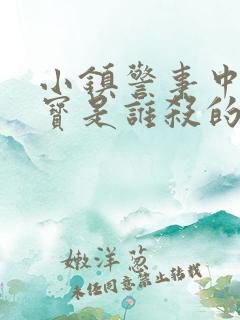 小鎮警事中
寶是誰殺的
嫩洋蔥
未經同意禁止轉載